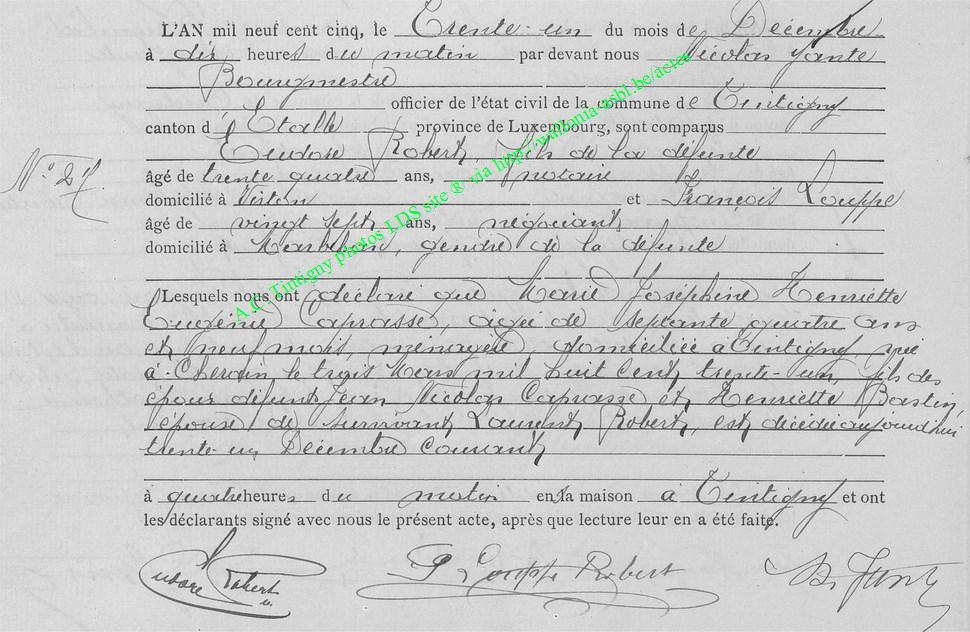 L'AN mil neuf cent cinq, le Trente-un du mois de Décembre
à dix heures du matin par devant nous Nicolas
Bourgmestre
officier de l'état civil de la commune de Tintigny
canton d'Etalle province de Luxembourg, sont comparus
Eudore Robert, fils de la défunte
N° 27.
âgé de trente quatre ans, notaire
domicilié à Virton et François Louppe
âgé de vingt sept ans, négociant
domicilié à Marbehan, gendre de la défunte
Lesquels nous ont déclaré que Marie Joséphine Henriette
Eugénie Caprasse, agée de septante quatre ans
et neuf mois, ménagère, domiciliée à Tintigny, née
à Cherain le trois Mars mil huit cent trente-un, fils des
époux défunts Jean Nicolas Caprasse et Henriette Bastin,
épouse de survivant Laurent Robert, est décédée aujourd'hui
trente-un Décembre courant
à quatre heures du matin en sa maison à Tintigny et ont
les déclarants signé avec nous le présent acte, après que lecture leur en a été faite.
Eudore Robert Louppe Robert
A.C. Tintigny Photos LDS site ® via http://wallonia-asbl.be/actes